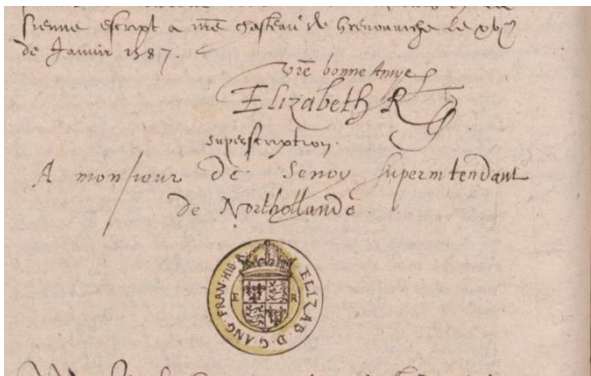 sienne escript a mre chasteau de Grenouwiche le xv
de Janvier 1587.
vre bonne Amye
Elizabeth R
superscription.
A monsieur de Senoy superintendant
de Northollande
ELIZAB·D·G·ANG·FRAN·HIB·
H R